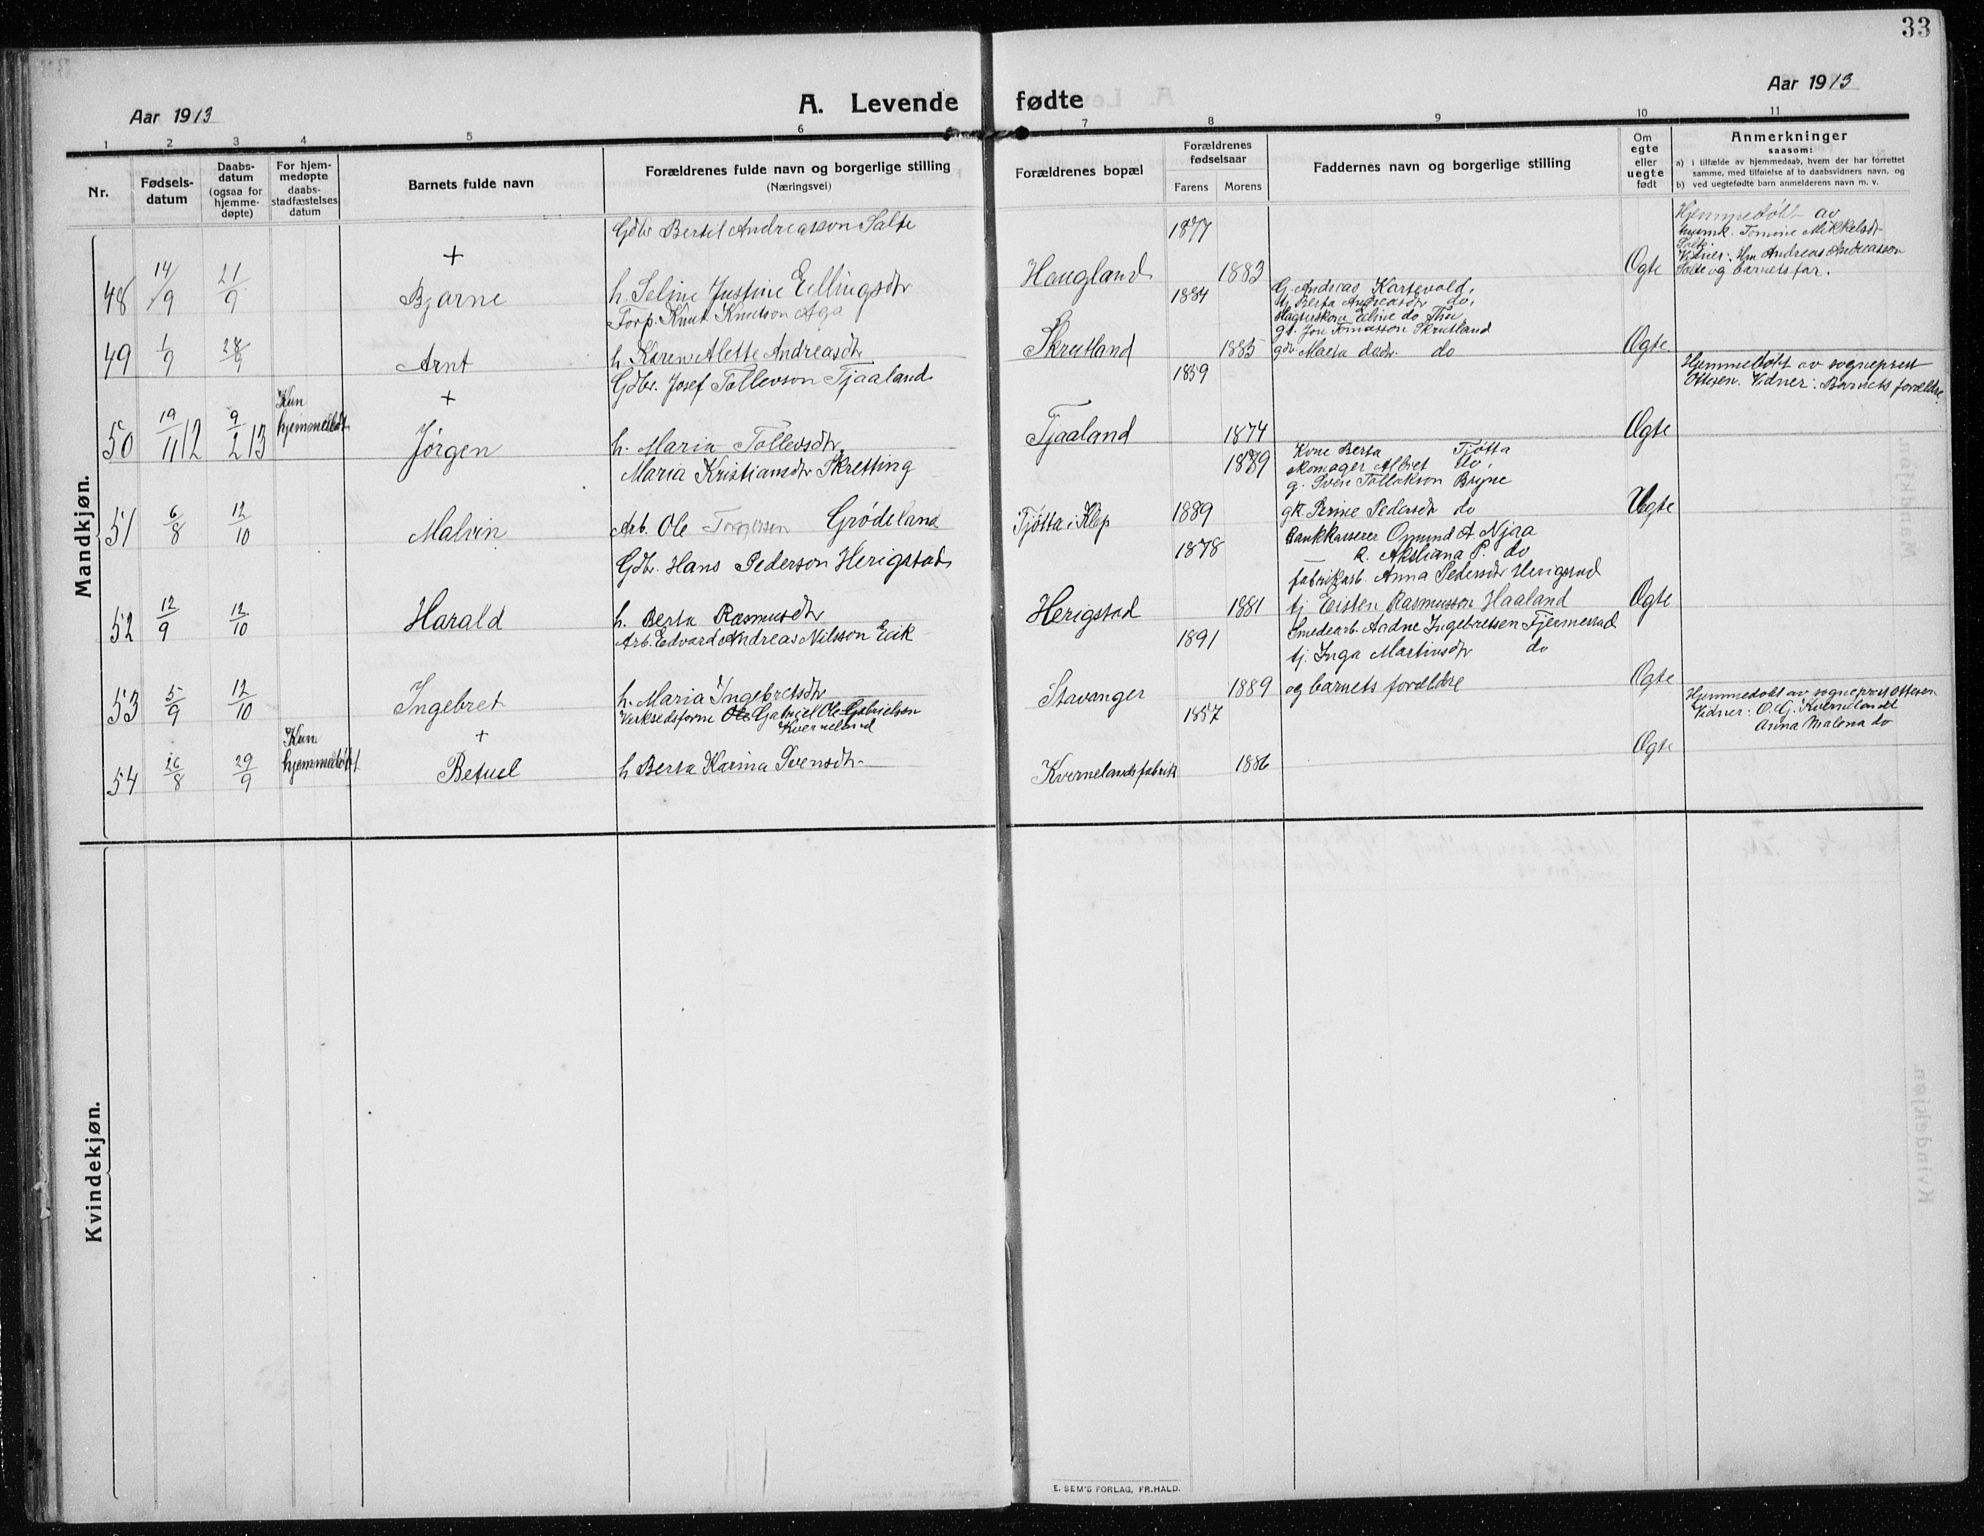 33
Aar 1913
A. Levende fødte
Aar 1913
1 2 3 4 5 6 7 8 9 10 11
Nr.
Fødsels-
datum
Daabs-
datum
(ogsaa for
hjemme-
døpte)
For hjem-
medøpte
daabs-
stadfæstelses
datum
Barnets fulde navn
Forældrenes fulde navn og borgerlige stilling
(Næringsvei)
Forældrenes bopæl
Forældrenes
fødselsaar
Farens Morens
Faddernes navn og borgerlige stilling
Om
egte
eller
uegte
født
Anmerkninger
saasom:
a) i tilfælde av hjemmedaab, hvem der har forrettet
samme, med tilføielse af to daabsvidners navn, og
b) ved uegtefødte barn anmelderens navn m. v.
Mandkjøn.
48 14/9 21/9
+
Bjarne
Gdbr Bertil Andreasson Salte
h. Seline Justine Ellingsdtr
Haugland
1877
1883
Ægte
Hjemmedøbt av
Tomine Mikkelsdr
Salte.
Vidner: Andreas Andreasson
Salte og barnets far.
49 1/9 28/9
Arnt
Forp. Knut Knutson Aga
h. Karen Alette Andreasdtr
Skrutland
1884
1885
G. Andreas Kartevold,
Berta Andreasdtr do,
Eline do Thu
Jon Tomasson Skrutland
Maria do
Ægte
50 19/11 12 9/2 13
Kun
hjemmedøbt
+
Jørgen
Gdbr. Josef Tollevson Tjaaland
h. Maria Tollevsdtr
Tjaaland
1859
1874
Ægte
Hjemmedøbt av sogneprest
Ottesen. Vidner: Barnets forældre.
51 6/8 12/10
Malvin
Maria Kristiansdtr Skretting
Arb. Ole Torgersen Grødeland
Tjøtta i Klep
1889
1889
Kone Berta Tjøtta
skomager Albret do,
g. Sven Tollakson Bryne
gk Pedersdtr do
Uegte
52 12/9 12/10
Harald
Gdbr. Hans Pederson Herigstad
h. Berta Rasmusdtr
Herigstad
1878
1881
Bankkasserer Omund A Njaa
P. do
fabrikarb. Anna Pedersdtr Herigstad
tj Eisten Rasmusson Haaland
Ægte
53 5/9 12/10
Ingebret
Arb. Edvard Andreas Nilsson Eeik
h. Maria Ingebretsdtr
Stavanger
1891
1889
Smedearb. Ingebretsen Fjermestad
tj. Inga Martinsdtr do
og barnets forældre
Ægte
54 26/8 29/9
Kun
hjemmedøbt
+
Betuel
Verksedsform Ole Gabriel Ole Gabrielsen
Kverneland
h Berta Karina Svensdtr
Kvernelandsfabrik
1857
1886
Ægte
Hjemmedøbt av sogneprest Ottesen
Vidner: O. G. Kvernelandt
Anna Malena do
Kvindekjøn.
E. SEM'S FORLAG, FR.HALD.